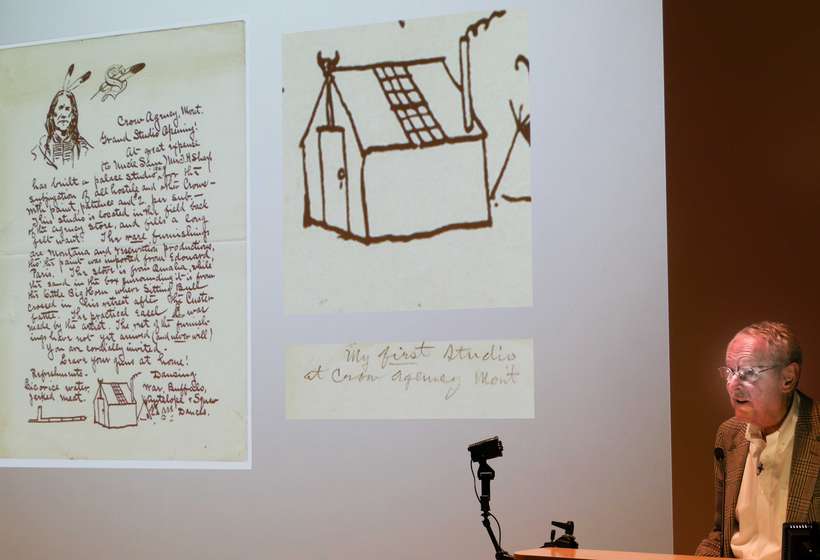 Crow Agency, Mont.
Grand Studio Opening!
At great expense
to Uncle Sam, Mr. J.H. Sharp
has built a palace studio for the
subjugation of all hostile and other Crows —
with paint, patience and $ per sub. —
This studio is located in the field back
of the agency store, and fills a long
felt want. The ware furnishings
are Montana and reservation productions,
tho' his paint was imported from Edouard,
Paris. The stove is from Omaha, while
the sand in the box surrounding it is from
the Little Big Horn where Sitting Bull
crossed in his retreat after the Custer
battle. The practical easel was
made by the artist. The rest of the furnish-
ings have not yet arrived (and never will)
You are cordially invited.
Leave your guns at home!
Refreshments. Dancing
Licorice water, War, Buffalo,
Jerked meat. Antelope & Squaw
Dances.
My first Studio
at Crow Agency Mont